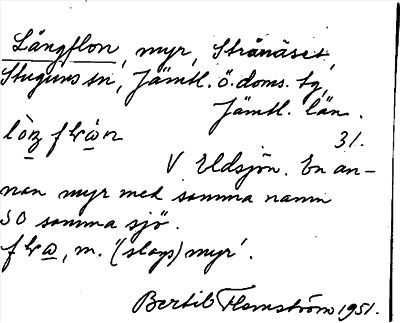 Långflon, myr, Strånäset,
Stuguns sn, Jämtl. ö. doms. tg,
Jämtl. län.
31.
V Eldsjön. En an-
nan myr med samma namn
SO samma sjö.
m. '(slags) myr'.
Bertil Flemström 1951.